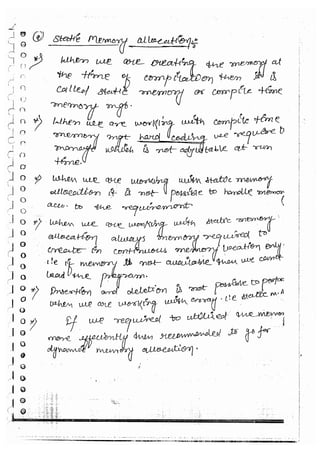 Static Memory allocation:
*) When we are creating the memory at
the time of compilation then it is
called static memory or compile time
memory mgt.
*) When we are working with compile time
memory mgt hard coding we require to
manage which is not adjustable at run
time.
*) When we are working with static memory
allocation it is not possible to handle memory
acco. to the requirement
*) When we are working with static memory
allocation always memory required to
create in continuous memory location only.
i.e if memory is not available then we cannot
load the program.
*) Insertion and deletion is not possible to
when we are working with array. i.e static m.a
*) If we required to utilised the memory
more efficiently then recommended to go for
dynamic memory allocation.